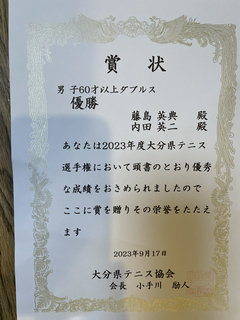 賞状
男子60才以上ダブルス
優勝
藤島 英典 殿
内田 英二 殿
あなたは2023年度大分県テニス
選手権において頭書のとおり優秀
な成績をおさめられましたので
ここに賞を贈りその栄誉をたたえ
ます
2023年9月17日
大分県テニス協会
会長 小手川 励人